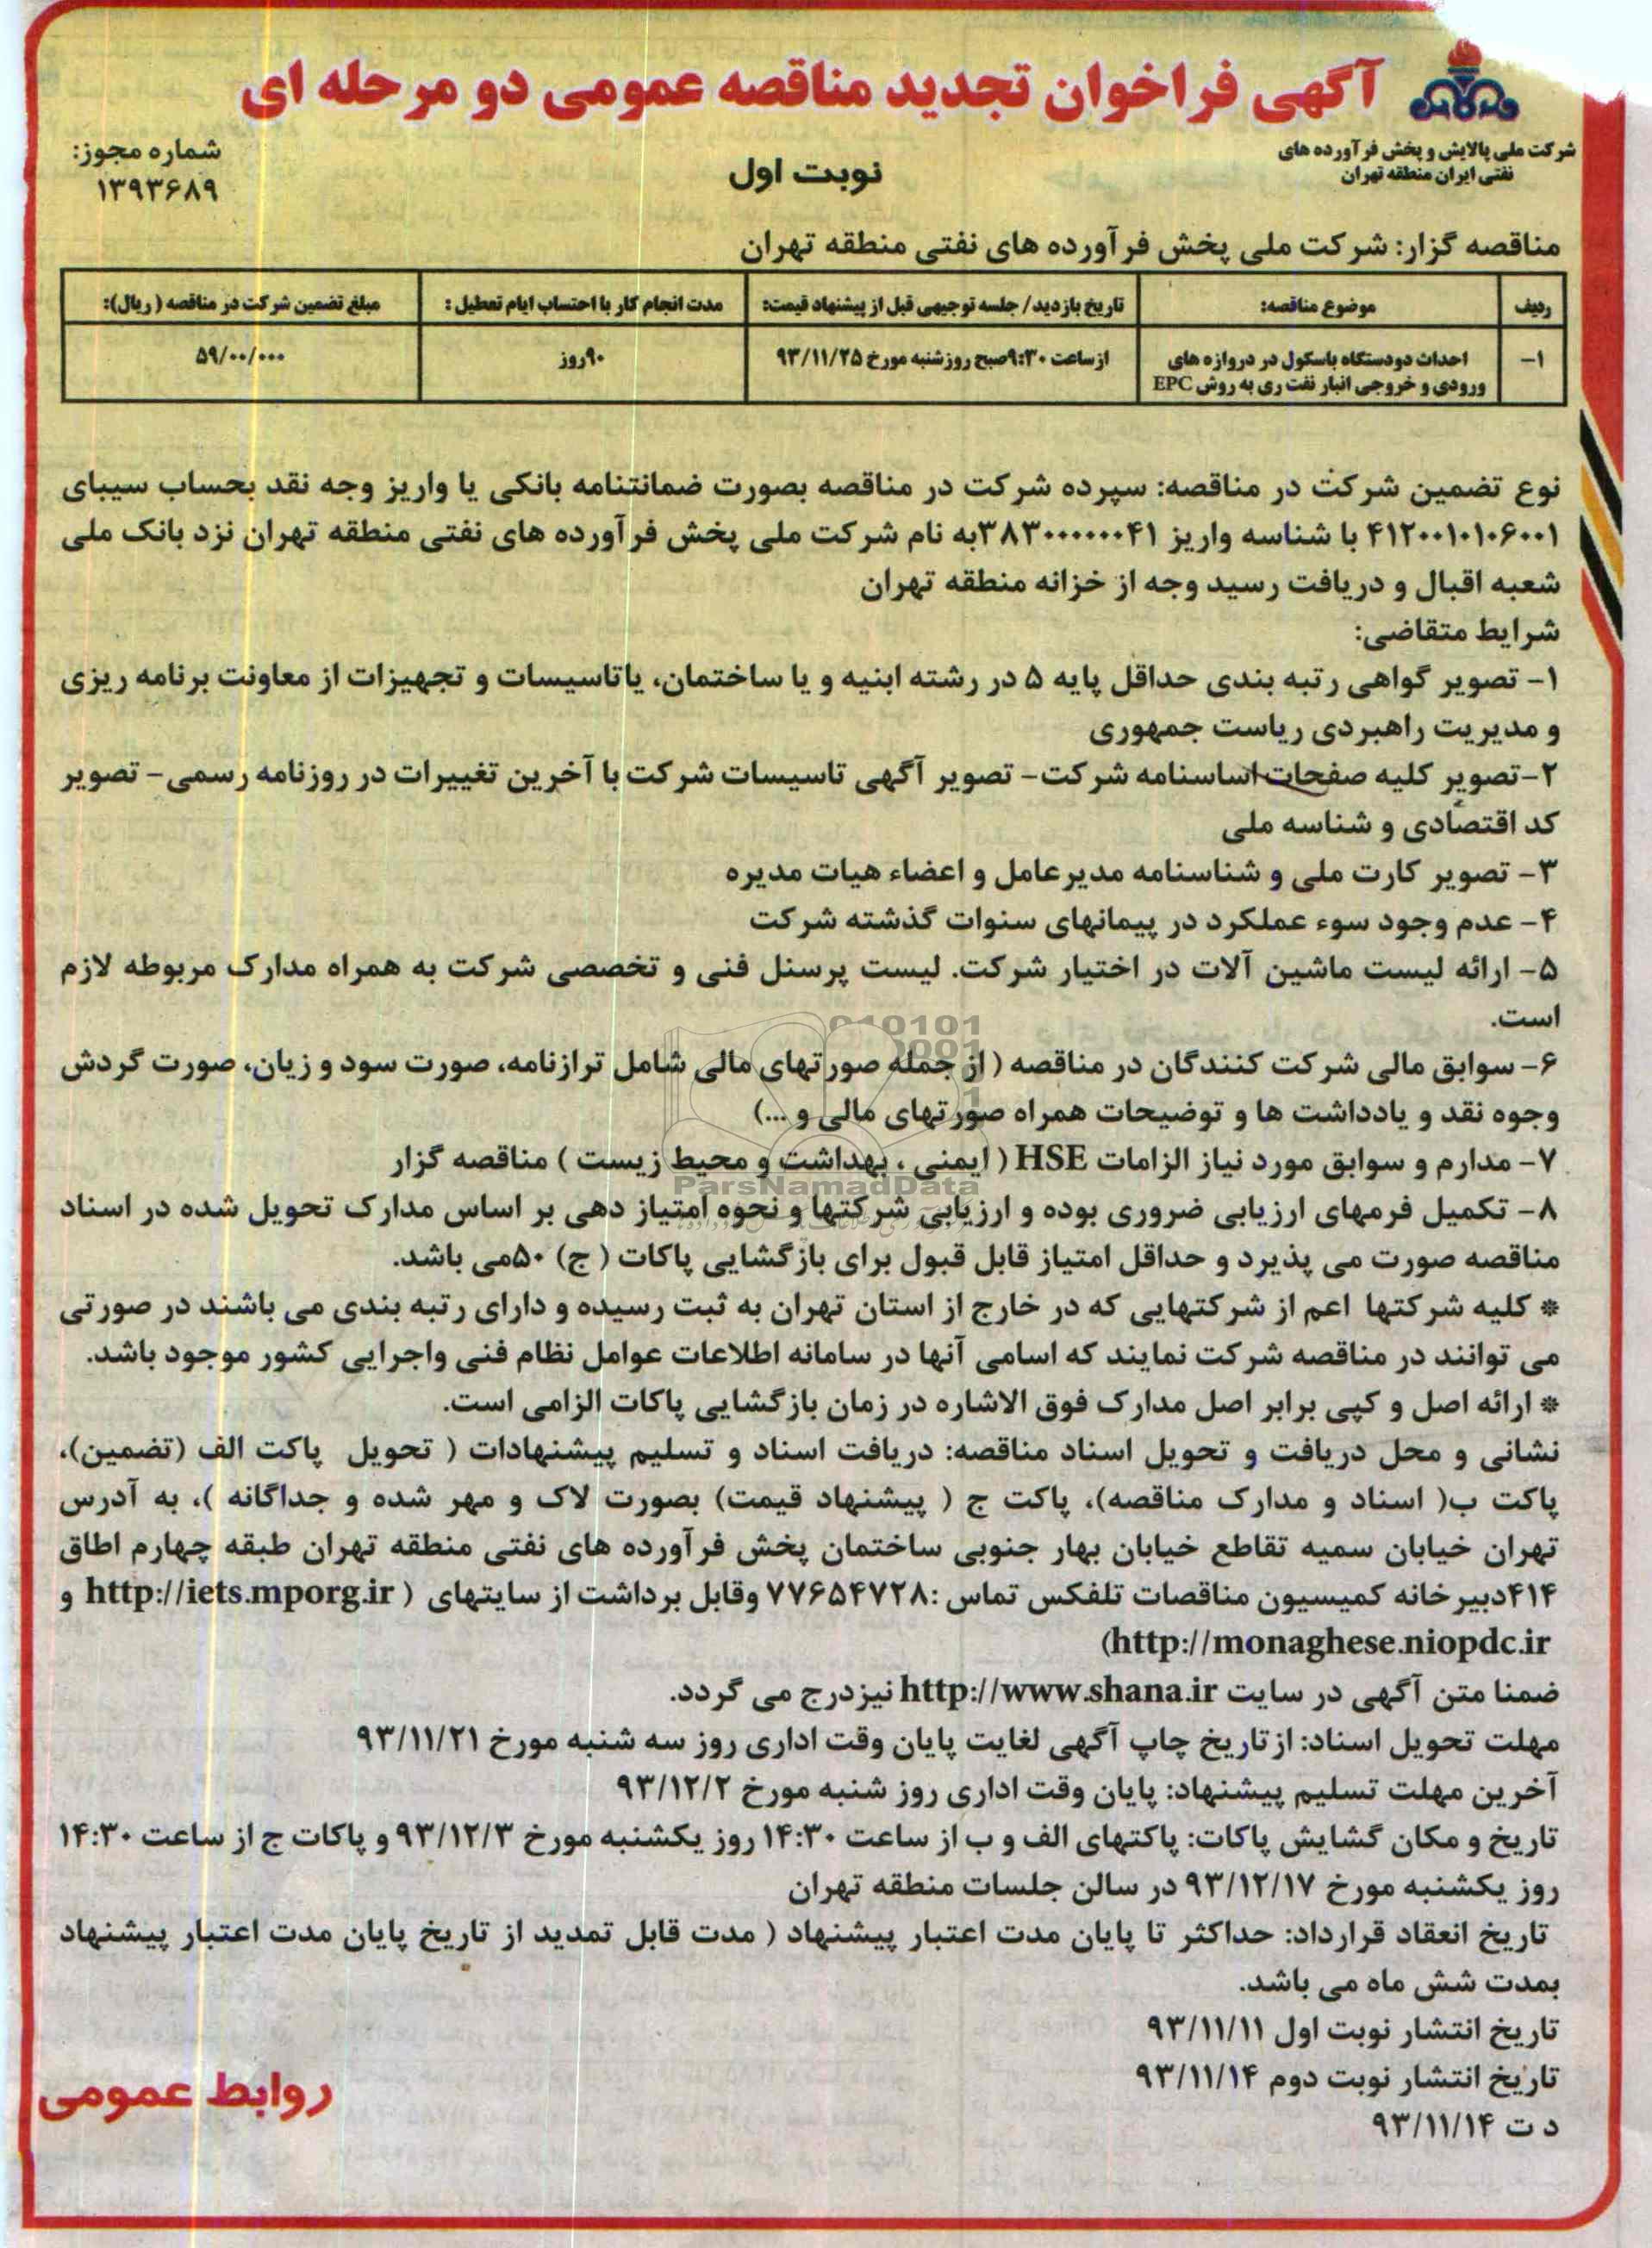 آگهی فراخوان تجدید مناقصه عمومی دو مرحله ای
شرکت ملی پالایش و پخش فرآورده های
نفتی ایران منطقه تهران
نوبت اول
شماره مجوز:
۱۳۹۳۶۸۹
مناقصه گزار: شرکت ملی پخش فرآورده های نفتی منطقه تهران
ردیف | موضوع مناقصه: | تاریخ بازدید/ جلسه توجیهی قبل از پیشنهاد قیمت: | مدت انجام کار با احتساب ایام تعطیل : | مبلغ تضمین شرکت در مناقصه ( ریال):
۱– | احداث دودستگاه باسکول در دروازه های | ازساعت ۹:۳۰صبح روزشنبه مورخ ۹۳/۱۱/۲۵ | ۹۰روز | ۵۹/۰۰/۰۰۰
ورودی و خروجی انبار نفت ری به روش EPC
نوع تضمین شرکت در مناقصه: سپرده شرکت در مناقصه بصورت ضمانتنامه بانکی یا واریز وجه نقد بحساب سیبای
۴۱۲۰۰۱۰۱۰۶۰۰۱ با شناسه واریز ۳۸۳۰۰۰۰۰۰۰۴۱به نام شرکت ملی پخش فرآورده های نفتی منطقه تهران نزد بانک ملی
شعبه اقبال و دریافت رسید وجه از خزانه منطقه تهران
شرایط متقاضی:
۱– تصویر گواهی رتبه بندی حداقل پایه ۵ در رشته ابنیه و یا ساختمان، یا تاسیسات و تجهیزات از معاونت برنامه ریزی
و مدیریت راهبردی ریاست جمهوری
۲–تصویر کلیه صفحات اساسنامه شرکت– تصویر آگهی تاسیسات شرکت با آخرین تغییرات در روزنامه رسمی– تصویر
کد اقتصادی و شناسه ملی
۳– تصویر کارت ملی و شناسنامه مدیرعامل و اعضاء هیات مدیره
۴– عدم وجود سوء عملکرد در پیمانهای سنوات گذشته شرکت
۵– ارائه لیست ماشین آلات در اختیار شرکت. لیست پرسنل فنی و تخصصی شرکت به همراه مدارک مربوطه لازم
است.
۶– سوابق مالی شرکت کنندگان در مناقصه ( از جمله صورتهای مالی شامل ترازنامه، صورت سود و زیان، صورت گردش
وجوه نقد و یادداشت ها و توضیحات همراه صورتهای مالی و ...)
۷– مدارم و سوابق مورد نیاز الزامات HSE ( ایمنی ، بهداشت و محیط زیست ) مناقصه گزار
ParsNamadData
۸– تکمیل فرمهای ارزیابی ضروری بوده و ارزیابی شرکتها و نحوه امتیاز دهی بر اساس مدارک تحویل شده در اسناد
مناقصه صورت می پذیرد و حداقل امتیاز قابل قبول برای بازگشایی پاکات ( ج) ۵۰می باشد.
* کلیه شرکتها اعم از شرکتهایی که در خارج از استان تهران به ثبت رسیده و دارای رتبه بندی می باشند در صورتی
می توانند در مناقصه شرکت نمایند که اسامی آنها در سامانه اطلاعات عوامل نظام فنی واجرایی کشور موجود باشد.
* ارائه اصل و کپی برابر اصل مدارک فوق الاشاره در زمان بازگشایی پاکات الزامی است.
نشانی و محل دریافت و تحویل اسناد مناقصه: دریافت اسناد و تسلیم پیشنهادات ( تحویل پاکت الف (تضمین)،
پاکت ب( اسناد و مدارک مناقصه)، پاکت ج ( پیشنهاد قیمت) بصورت لاک و مهر شده و جداگانه )، به آدرس
تهران خیابان سمیه تقاطع خیابان بهار جنوبی ساختمان پخش فرآورده های نفتی منطقه تهران طبقه چهارم اطاق
۴۱۴دبیرخانه کمیسیون مناقصات تلفکس تماس :۷۷۶۵۴۷۲۸ وقابل برداشت از سایتهای ( http://iets.mporg.ir و
http://monaghese.niopdc.ir)
ضمنا متن آگهی در سایت http://www.shana.ir نیزدرج می گردد.
مهلت تحویل اسناد: از تاریخ چاپ آگهی لغایت پایان وقت اداری روز سه شنبه مورخ ۹۳/۱۱/۲۱
آخرین مهلت تسلیم پیشنهاد: پایان وقت اداری روز شنبه مورخ ۹۳/۱۲/۲
تاریخ و مکان گشایش پاکات: پاکتهای الف و ب از ساعت ۱۴:۳۰ روز یکشنبه مورخ ۹۳/۱۲/۳ و پاکات ج از ساعت ۱۴:۳۰
روز یکشنبه مورخ ۹۳/۱۲/۱۷ در سالن جلسات منطقه تهران
تاریخ انعقاد قرارداد: حداکثر تا پایان مدت اعتبار پیشنهاد ( مدت قابل تمدید از تاریخ پایان مدت اعتبار پیشنهاد
بمدت شش ماه می باشد.
تاریخ انتشار نوبت اول ۹۳/۱۱/۱۱
تاریخ انتشار نوبت دوم ۹۳/۱۱/۱۴
د ت ۹۳/۱۱/۱۴
روابط عمومی